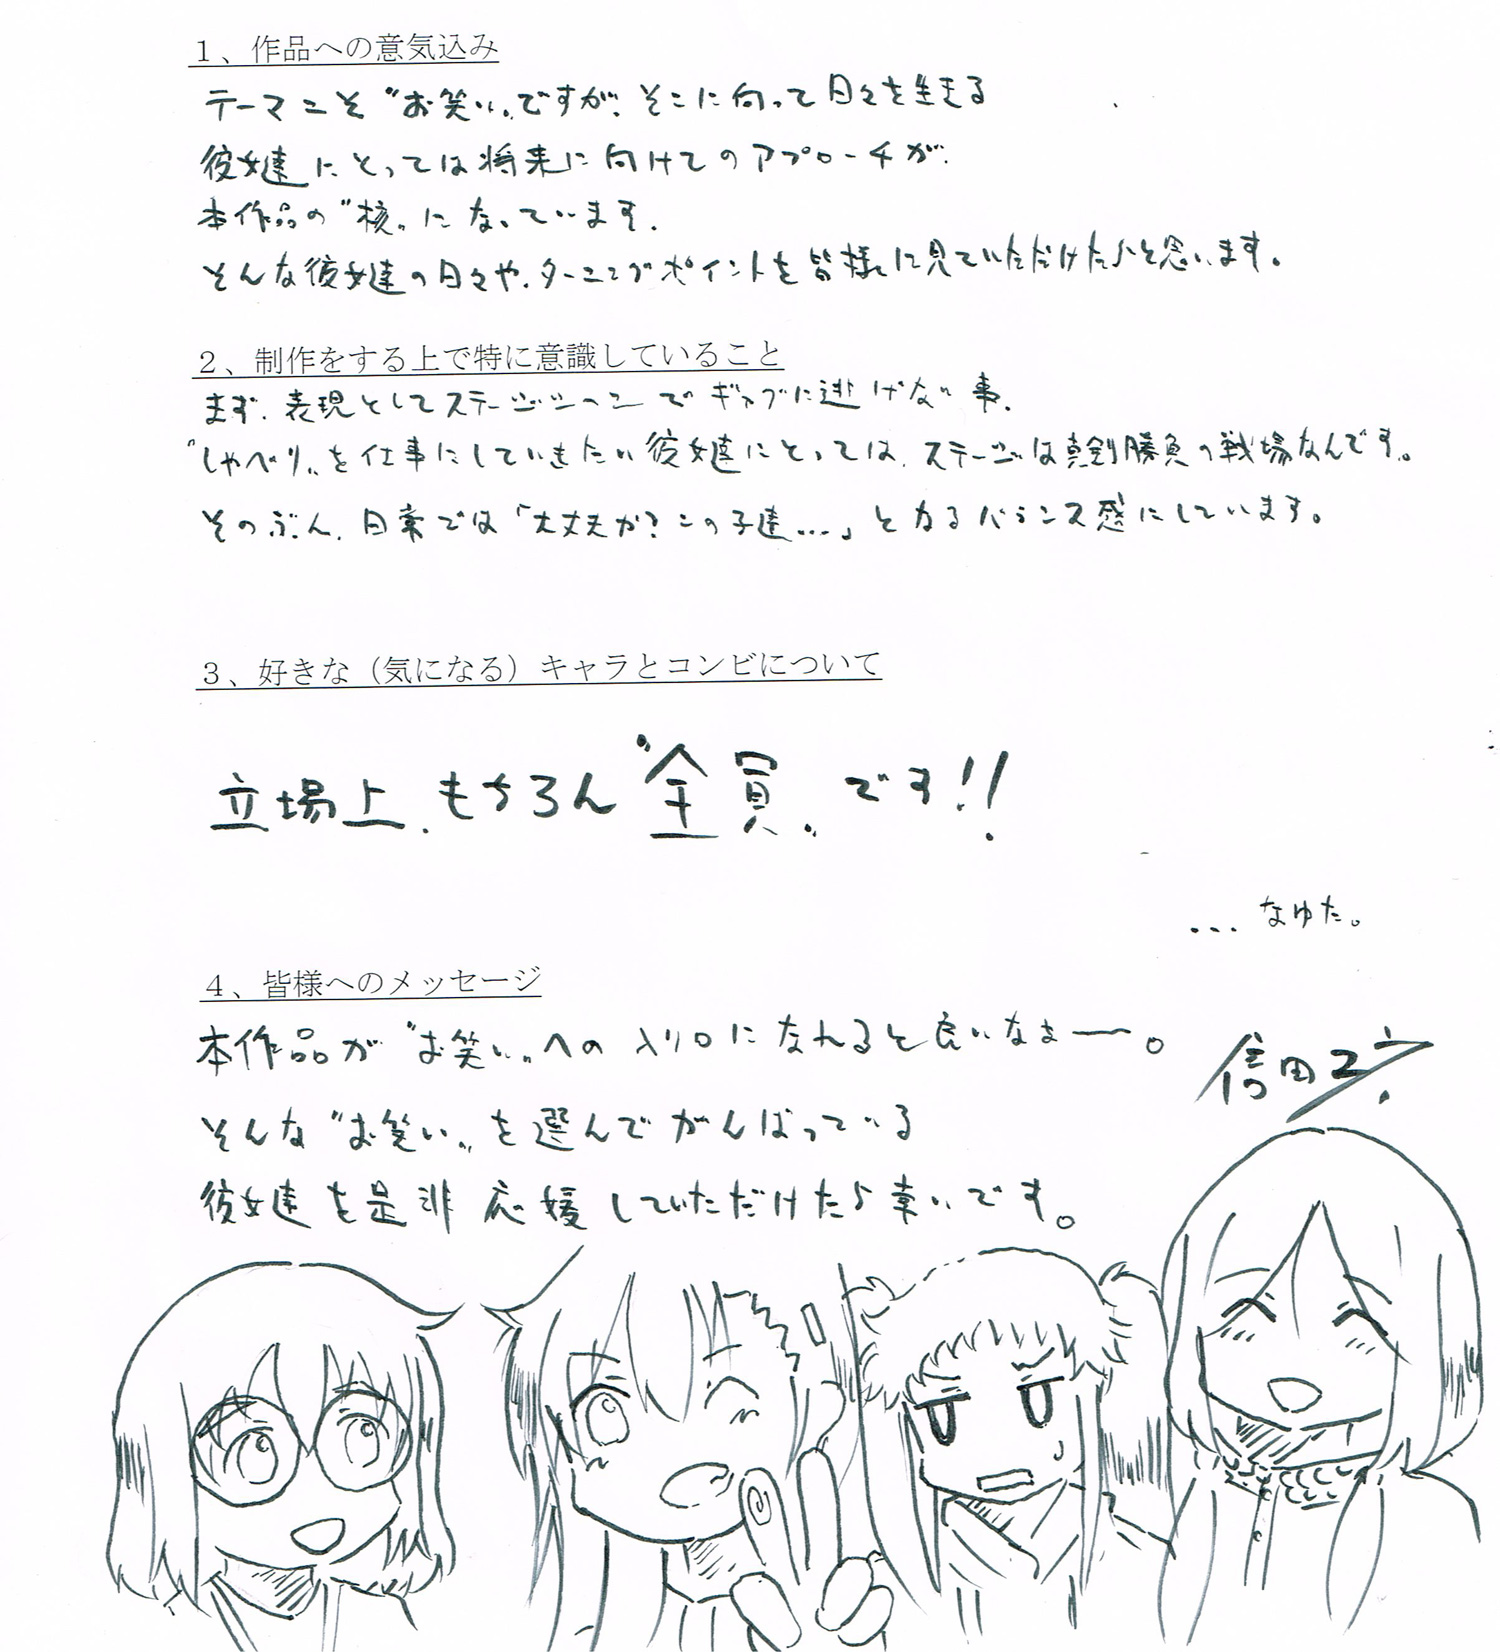 １、作品への意気込み
テーマこそ〝お笑い〟ですが、そこに向って日々を生きる
彼女達にとっては将来に向けてのアプローチが、
本作品の〝核〟になっています。
そんな彼女達の日々や、ターニングポイントを皆様に見ていただけたらと思います。
２、制作をする上で特に意識していること
まず、表現としてステージシーンでギャグに逃げない事。
〝しゃべり〟を仕事にしていきたい彼女達にとっては、ステージは真剣勝負の戦場なんです。
そのぶん、日常では「大丈夫か？この子達…」となるバランス感にしています。
３、好きな（気になる）キャラとコンビについて
立場上、もちろん〝全員〟です!!
…なゆた。
４、皆様へのメッセージ
本作品が〝お笑い〟への入り口になれると良いなぁー。
そんな〝お笑い〟を選んでがんばっている
彼女達を是非応援していただけたら幸いです。
信田ユウ